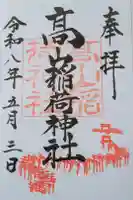 奉拝
高山稲荷神社
令和八年五月三日